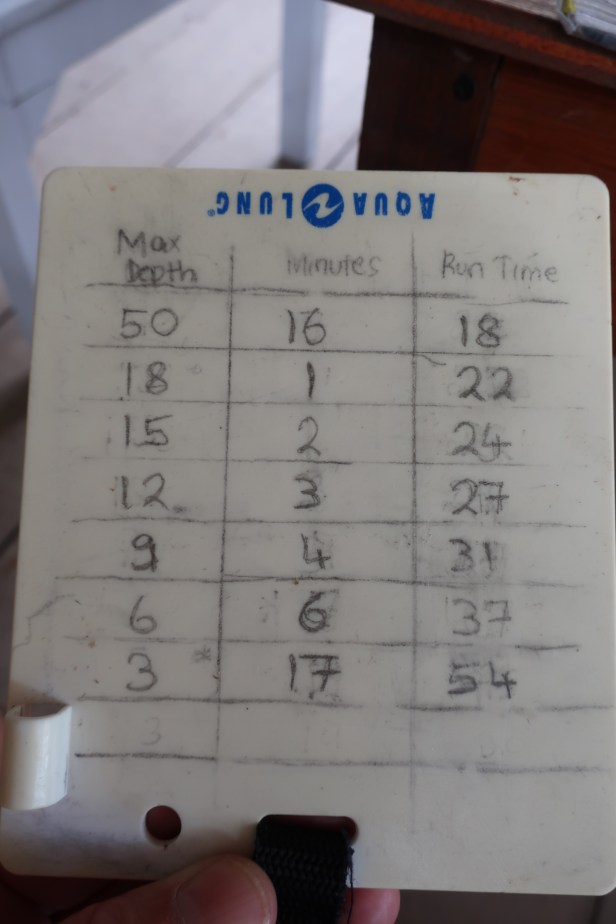 AQUA LUNG
Max Depth Minutes Run Time
50 16 18
18 1 22
15 2 24
12 3 27
9 4 31
6 6 37
3 17 54
3